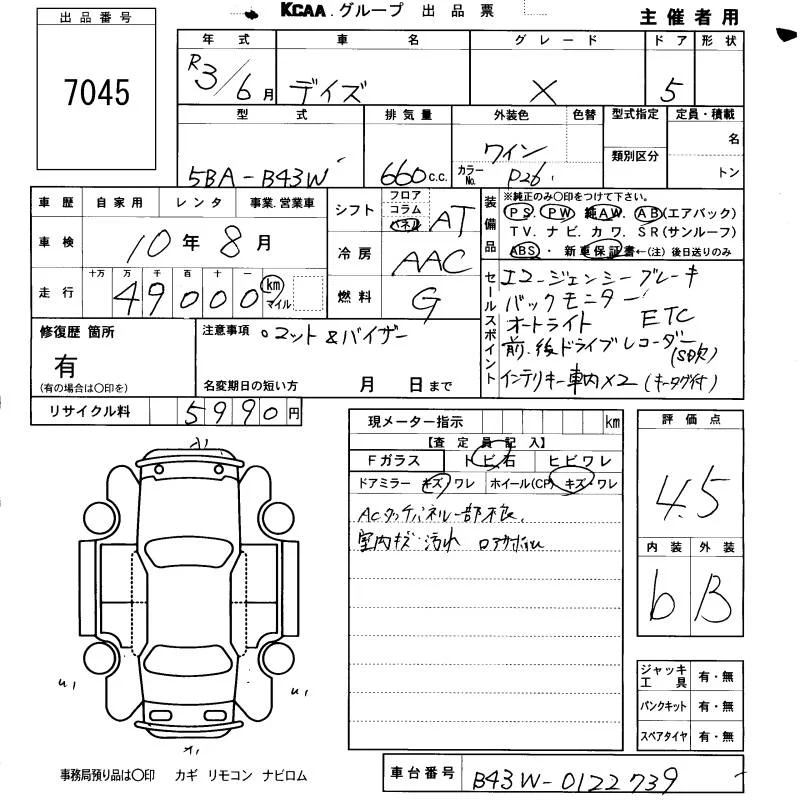 KCAA.グループ 出品票
主催者用
出品番号
7045
年式 車名 グレード ドア 形状
R3/6月 デイズ X 5
型式 排気量 外装色 色替 型式指定 定員・積載
5BA-B43W 660c.c. ワイン 類別区分 名
カラーNo. P26 トン
車歴 自家用 レンタ 事業.営業車
車検 10年8月
十万 万 千 百 十 一
走行 49000 km マイル
シフト フロア コラム パネル AT
冷房 AAC
燃料 G
装備品
※純正のみ〇印をつけて下さい。
PS. PW 純AW. AB(エアバック)
TV.ナビ.カワ.SR(サンルーフ)
ABS・新車保証書←(注)後日送りのみ
セールスポイント
エマージェンシーブレーキ
バックモニター
オートライト ETC
前.後ドライブレコーダー
インテリキー車内×2(キータグ付)
修復歴 箇所
有
(有の場合は〇印を)
注意事項 。マット&バイザー
名変期日の短い方 月 日まで
リサイクル料 5990円
現メーター指示 km
【査定員記入】
Fガラス トビ石 ヒビワレ
ドアミラー キズ・ワレ ホイール(CP) キズ・ワレ
ACタッチパネル一部不良、
室内キズ・汚れ
評価点
4.5
内装 外装
b B
ジャッキ工具 有・無
パンクキット 有・無
スペアタイヤ 有・無
事務局預り品は〇印 カギ リモコン ナビロム
車台番号 B43W-0122739